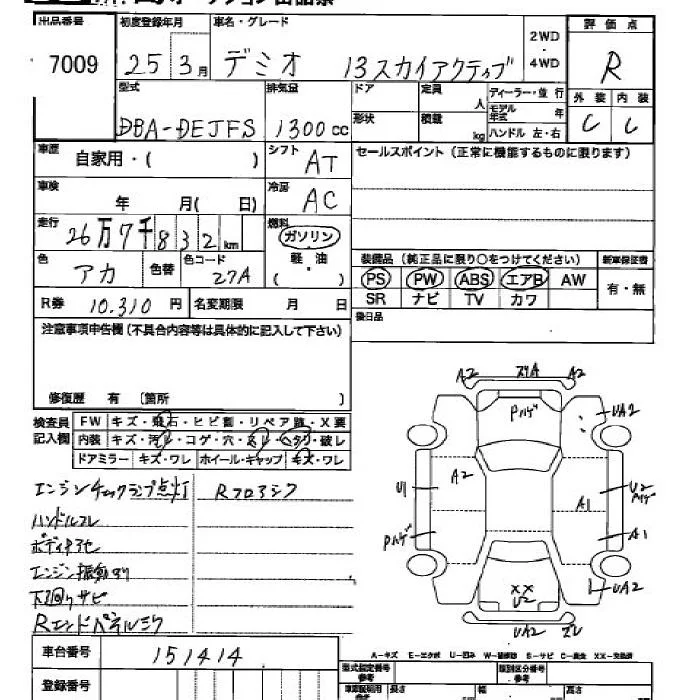 出品番号 初度登録年月 車名・グレード 2WD ・ 4WD 評価点
7009 25 3月 デミオ 13スカイアクティブ R
型式 排気量 ドア 定員 人 ディーラー・並行 外装 内装
DBA-DEJFS 1300cc 形状 積載 kg モデル年式 年 ハンドル 左・右 C C
車歴 自家用・( ) シフト AT セールスポイント (正常に機能するものに限ります)
車検 年 月( 日) 冷房 AC
走行 26万7千832km 燃料 ガソリン 軽・油 ( )
色 アカ 色替 色コード 27A 装備品 (純正品に限り○をつけてください) 新車保証書
PS PW ABS エアB AW 有・無
SR ナビ TV カワ
R券 10.310円 名変期限 月 日 後日品
注意事項申告欄 (不具合内容等は具体的に記入して下さい)
修復歴 有 〔箇所 〕
検査員記入欄 FW キズ・飛石・ヒビ割・リペア跡・X要
内装 キズ・汚レ・コゲ・穴・スレ・ヘタリ・破レ
ドアミラー キズ・ワレ ホイール・キャップ キズ・ワレ
エンジンチェックランプ点灯 Rフロアシワ
ハンドルスレ
エンジン振動有り
下回りサビ
Rエンドパネルシワ
A2 A2
Pハゲ UA2
A2 U1 U2 Pハゲ
A1 A1
Pハゲ
XX U2 UA2
UA2 ズレ
A-キズ E-エクボ U-凹み W-補修跡 S-サビ C-腐食 XX-交換済
車台番号 151414 型式指定番号 類別区分番号
登録番号 長さ 幅 高さ